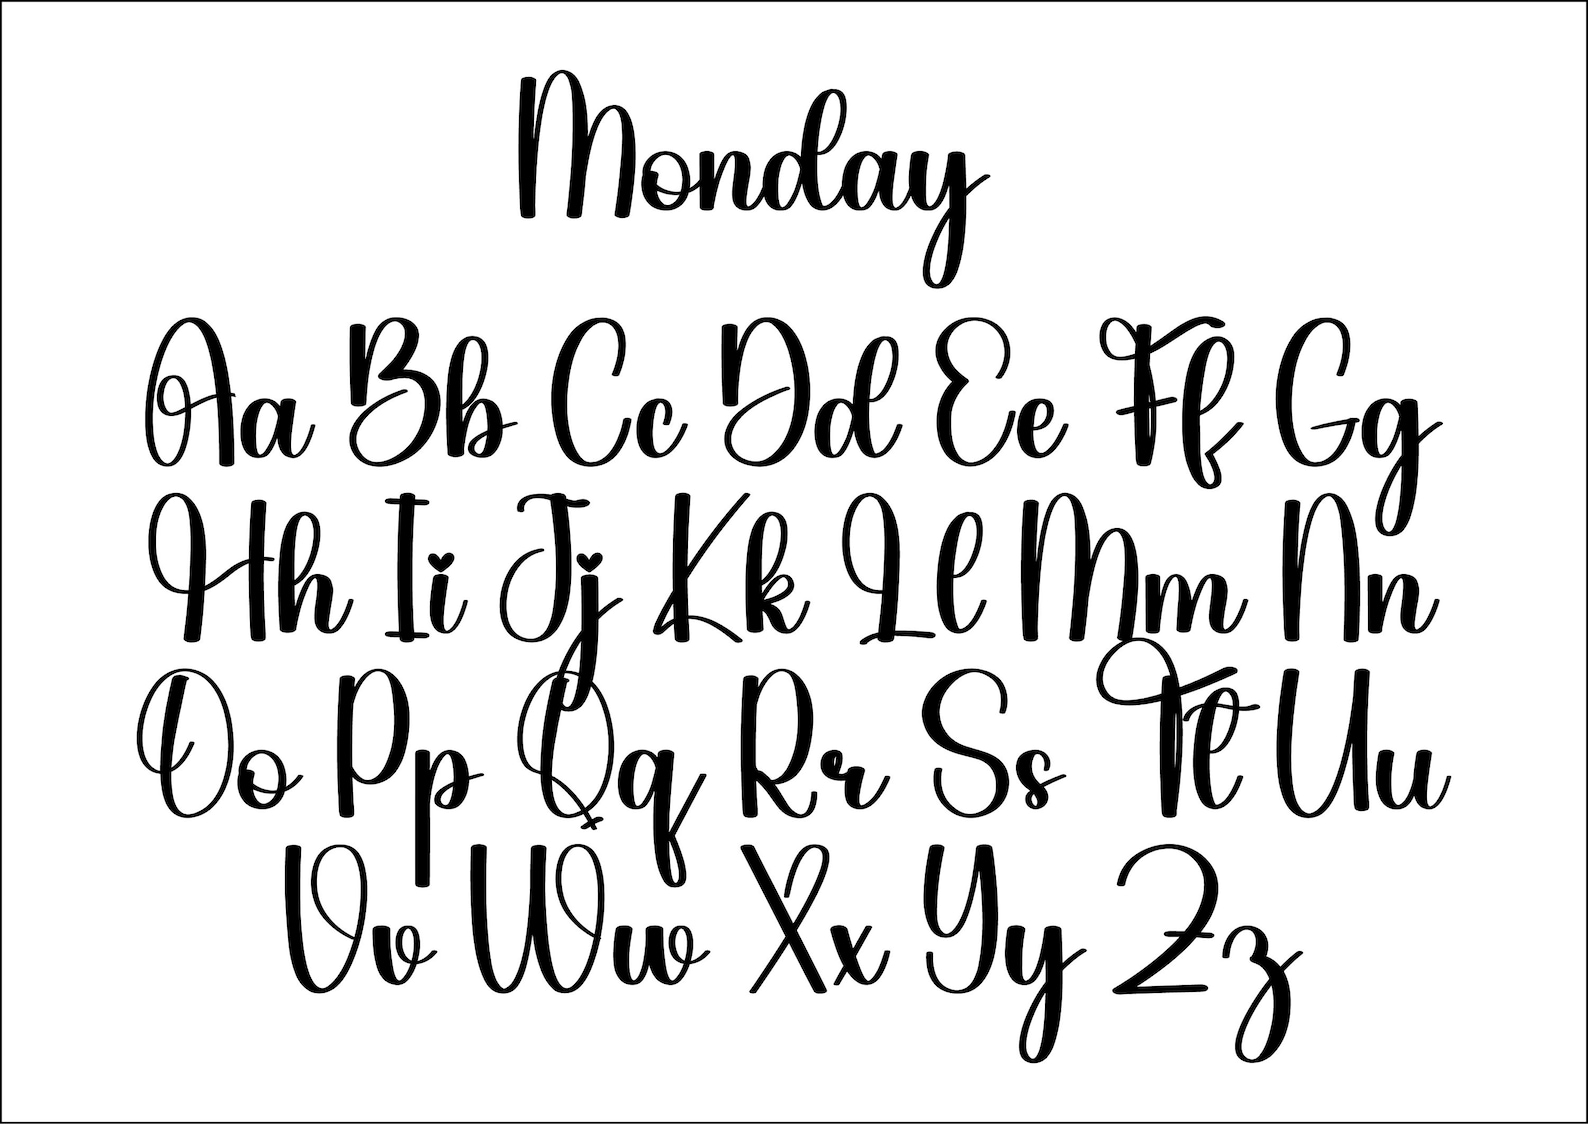 Monday
Aa Bb Cc Dd Ee Ff Gg
Hh Ii Jj Kk Ll Mm Nn
Oo Pp Qq Rr Ss Tt Uu
Vv Ww Xx Yy Zz